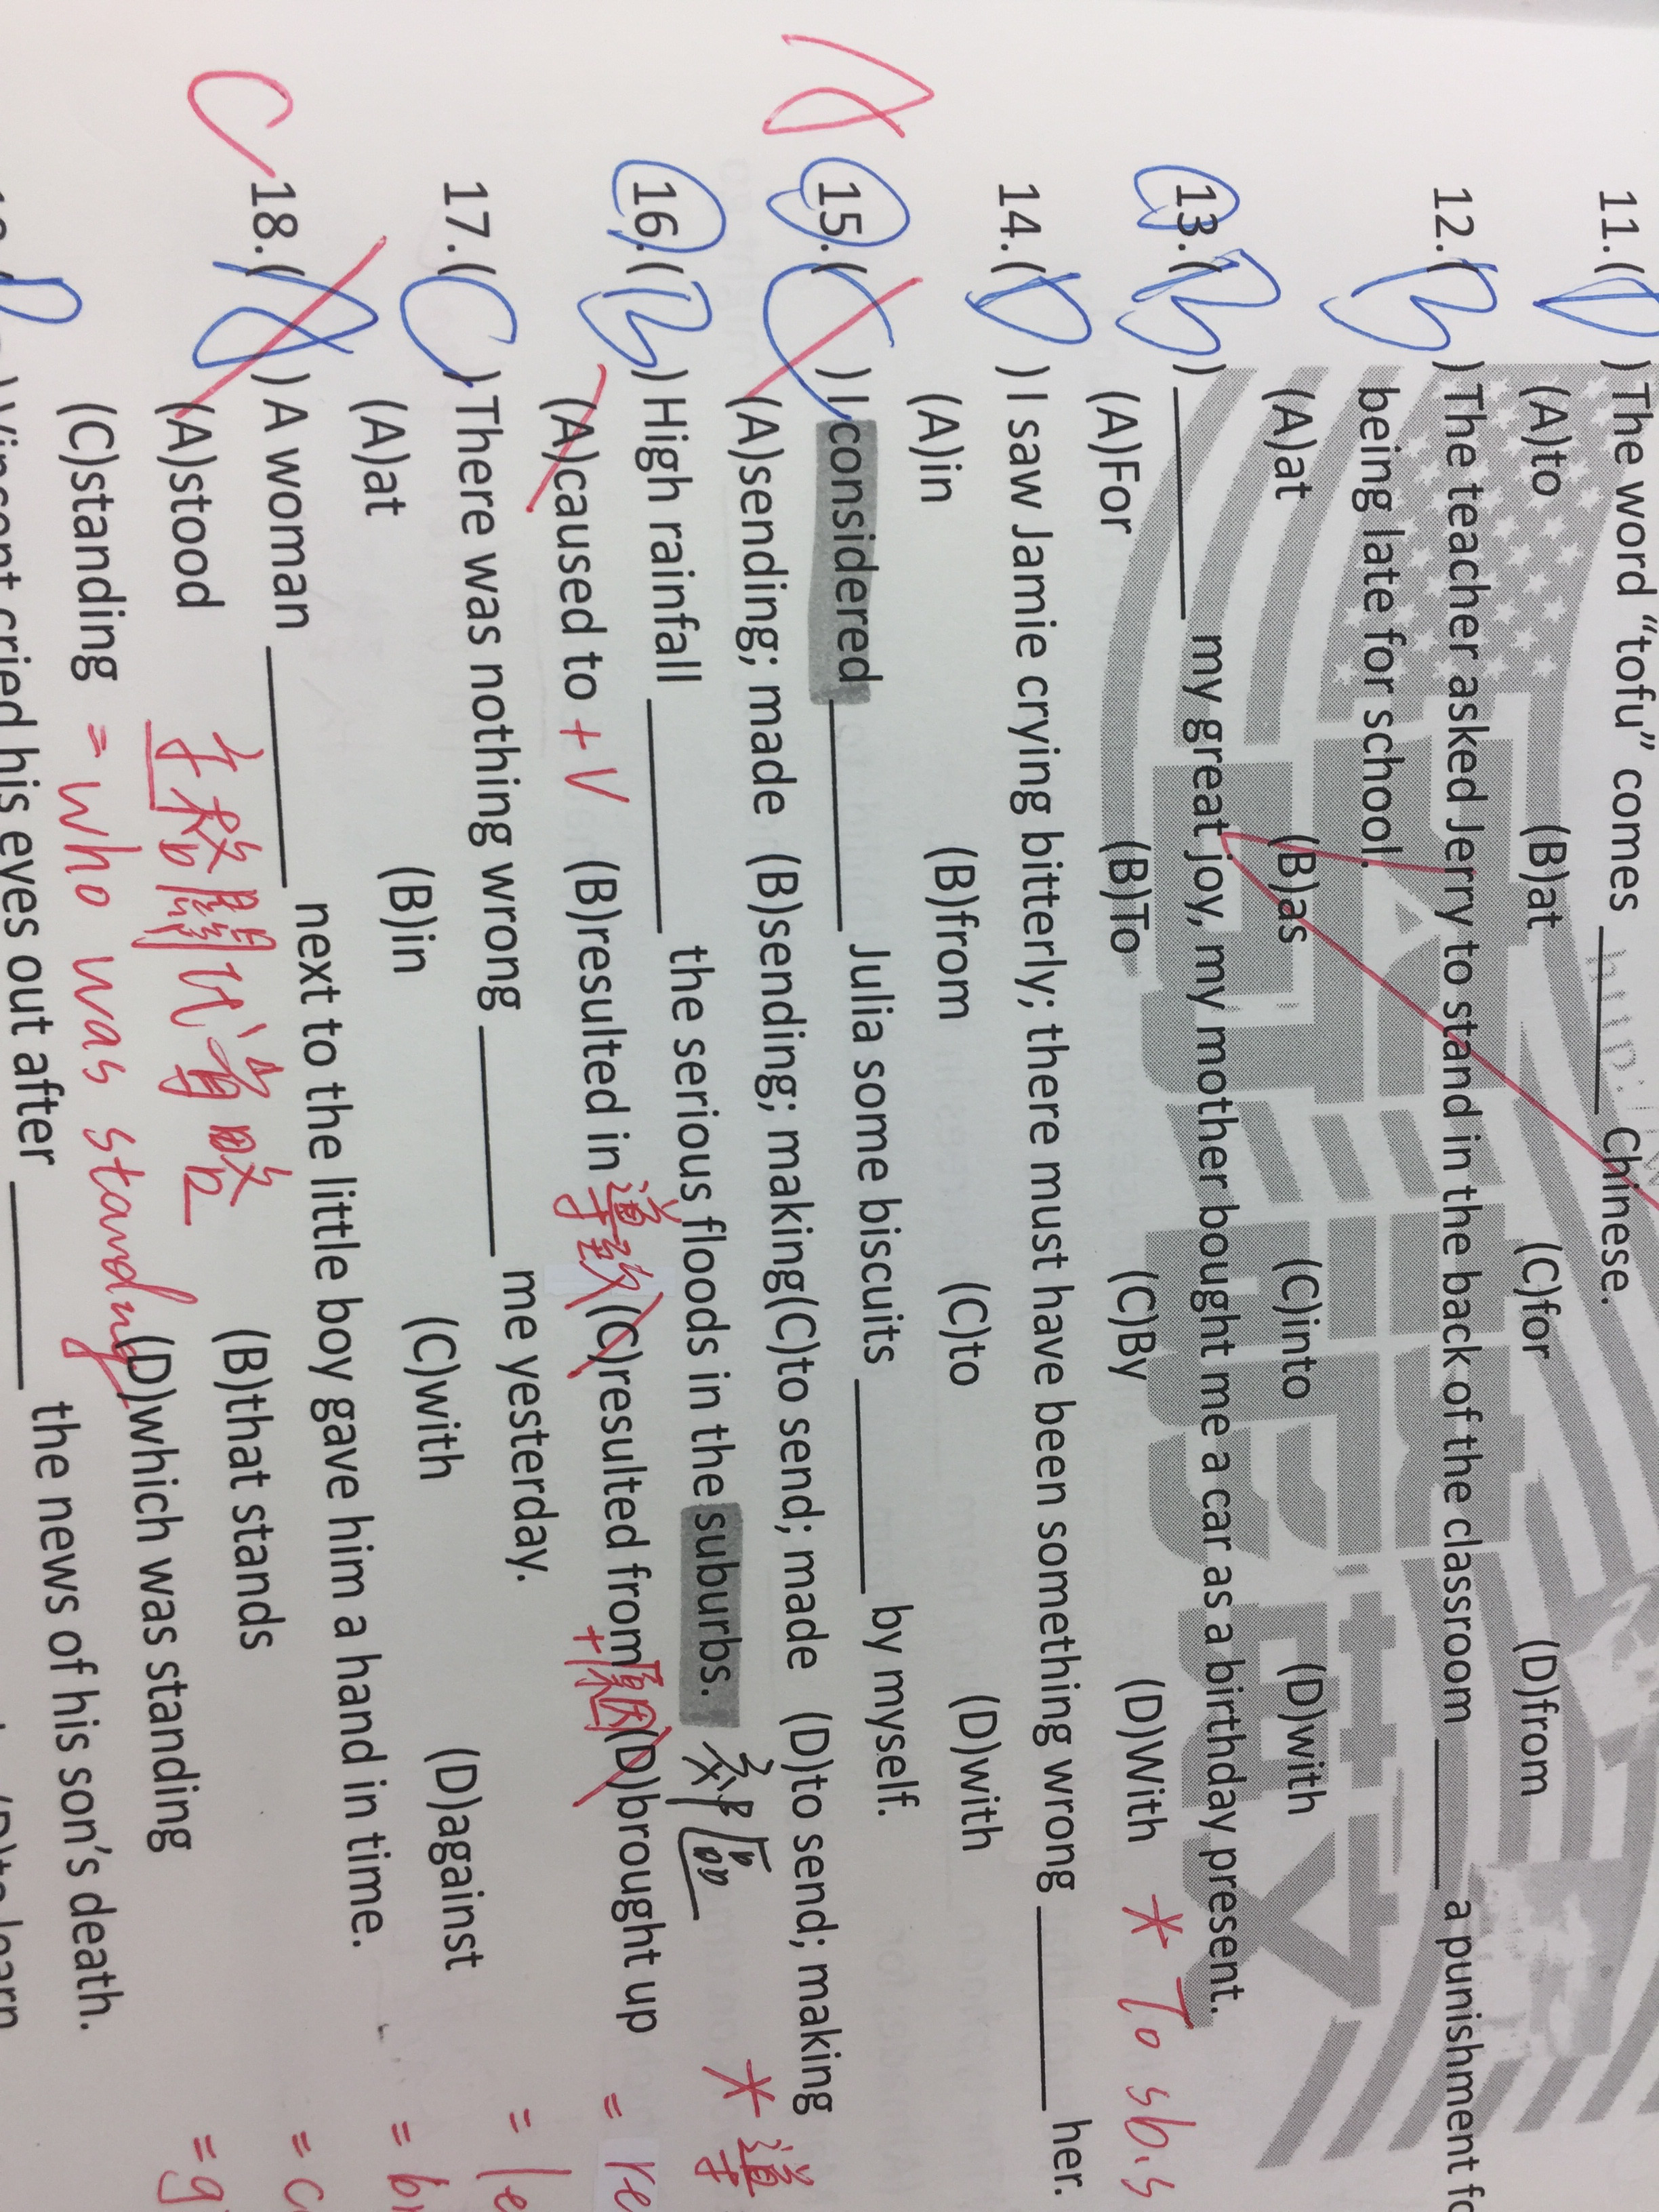 11.( D ) The word “tofu” comes ______ Chinese.
(A)to (B)at (C)for (D)from
12.( B ) The teacher asked Jerry to stand in the back of the classroom ______ a punishment
being late for school.
(A)at (B)as (C)into (D)with
13.( B ) ______ my great joy, my mother bought me a car as a birthday present.
(A)For (B)To (C)By (D)With * To sb.s
14.( D ) I saw Jamie crying bitterly; there must have been something wrong ______ her.
(A)in (B)from (C)to (D)with
A 15.( C ) I considered ______ Julia some biscuits ______ by myself.
(A)sending; made (B)sending; making(C)to send; made (D)to send; making
16.( B ) High rainfall ______ the serious floods in the suburbs. * 導
(A)caused to + V (B)resulted in 導致 (C)resulted from +原因 (D)brought up = re
17.( C ) There was nothing wrong ______ me yesterday.
(A)at (B)in (C)with (D)against
C 18.( A ) A woman ______ next to the little boy gave him a hand in time.
(A)stood 主格關代省略 (B)that stands
(C)standing = who was standing (D)which was standing
Vincent cried his eyes out after ______ the news of his son’s death.